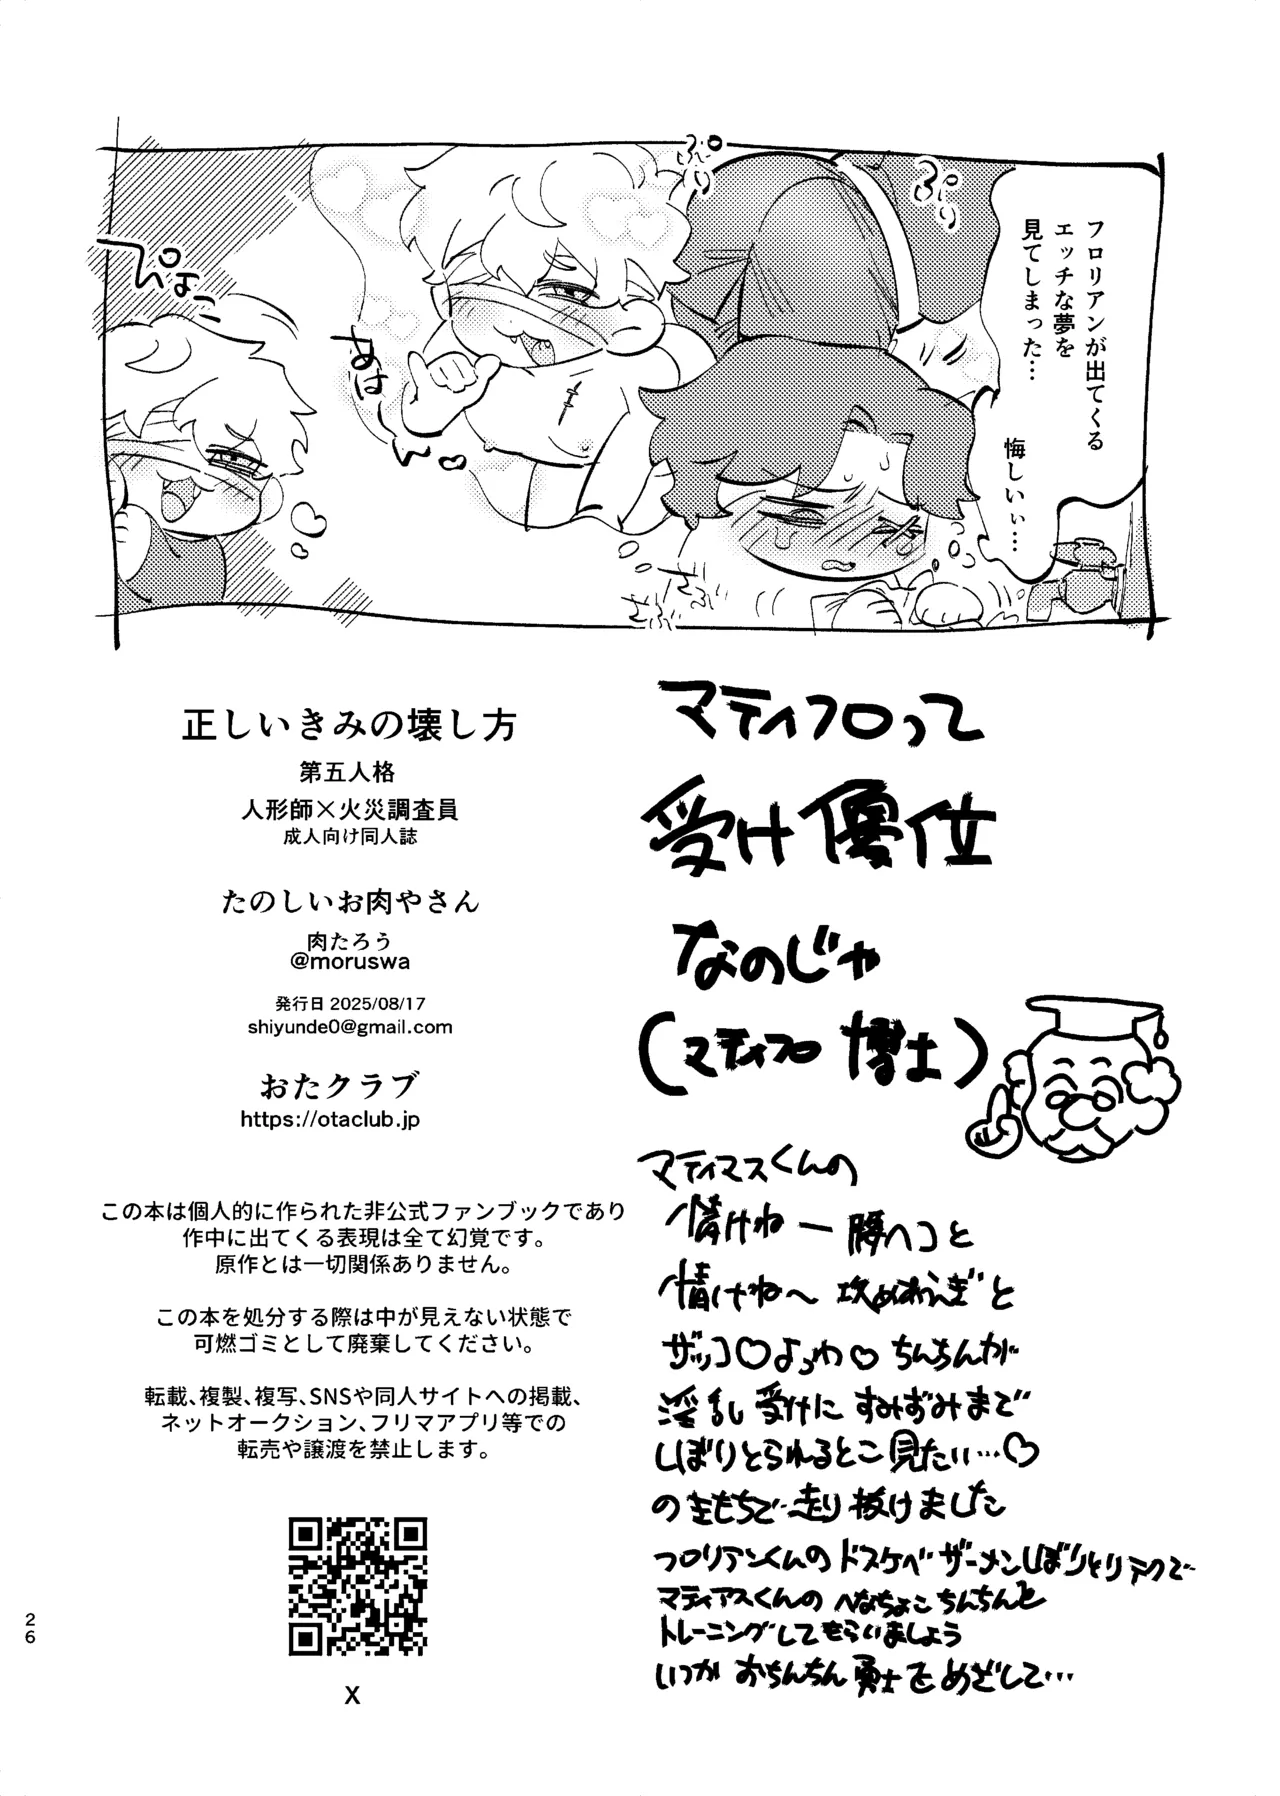 フロリアンが出てくる
エッチな夢を
見てしまった…
悔しいぃ…
ぷり
ぷり
あは
ぴょー
マティフロって
受け優位
なのじゃ
(マティフロ 博士)
マティアスくんの
情けねー腰ヘコと
情けね〜 攻めあえぎと
ザッコ♡よっわ♡ちんちんが
淫乱受けにすみずみまで
しぼりとられるとこ見たい…♡
の気もちで走り抜けました
フロリアンくんのドスケベザーメンしぼりとりテクで
マティアスくんのへなちょこちんちんを
トレーニングしてもらいましょう
いつかおちんちん勇士をめざして…
正しいきみの壊し方
第五人格
人形師×火災調査員
成人向け同人誌
たのしいお肉やさん
肉たろう
@moruswa
発行日 2025/08/17
shiyunde0@gmail.com
おたクラブ
https://otaclub.jp
この本は個人的に作られた非公式ファンブックであり
作中に出てくる表現は全て幻覚です。
原作とは一切関係ありません。
この本を処分する際は中が見えない状態で
可燃ゴミとして廃棄してください。
転載、複製、複写、SNSや同人サイトへの掲載、
ネットオークション、フリマアプリ等での
転売や譲渡を禁止します。
X
26